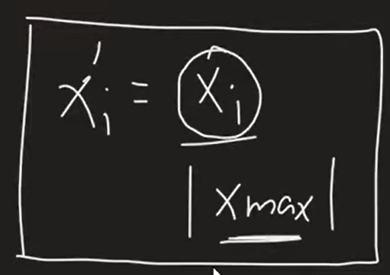 x'i = xi
|xmax|